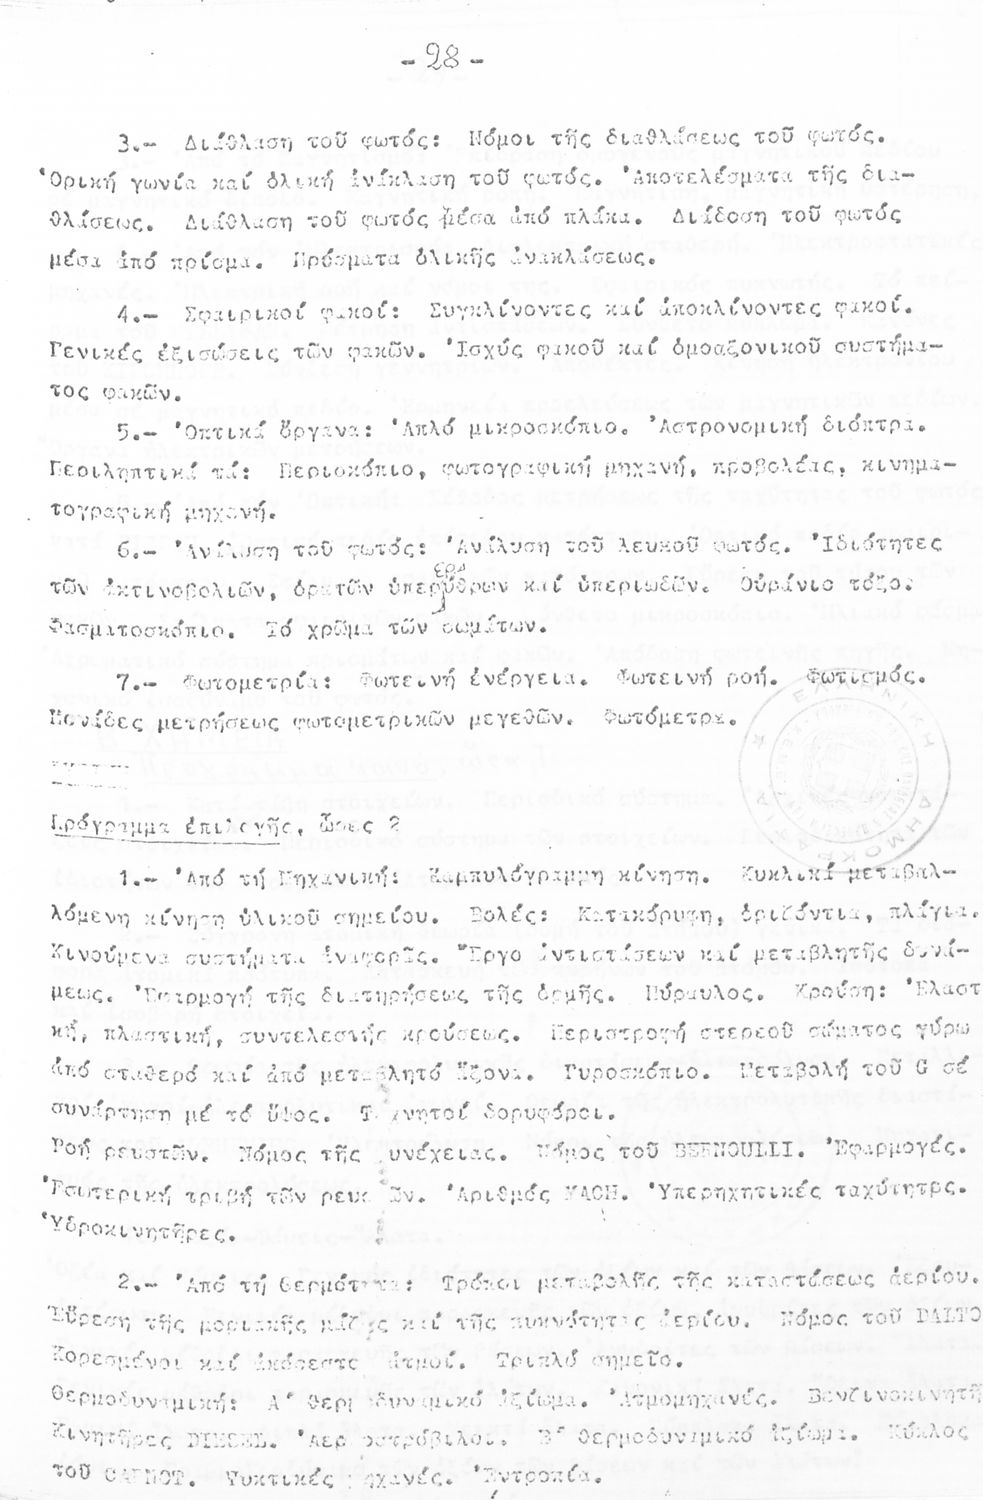 - 28 -
3.- Διάθλαση τοῦ φωτός: Νόμοι τῆς διαθλάσεως τοῦ φωτός.
Ὁρική γωνία καί ὁλική ἀνάκλαση τοῦ φωτός. Ἀποτελέσματα τῆς δια-
θλάσεως. Διάθλαση τοῦ φωτός μέσα ἀπό πλάκα. Διάδοση τοῦ φωτός
μέσα ἀπό πρίσμα. Πρίσματα ὁλικῆς ἀνακλάσεως.
4.- Σφαιρικοί φακοί: Συγκλίνοντες καί ἀποκλίνοντες φακοί.
Γενικές ἐξισώσεις τῶν φακῶν. Ἰσχύς φακοῦ καί ὁμοαξονικοῦ συστήμα-
τος φακῶν.
5.- Ὀπτικά ὄργανα: Ἁπλό μικροσκόπιο. Ἀστρονομική διόπτρα.
Περιληπτικά τά: Περισκόπιο, φωτογραφική μηχανή, προβολέας, κινημα-
τογραφική μηχανή.
6.- Ἀνάλυση τοῦ φωτός: Ἀνάλυση τοῦ λευκοῦ φωτός. Ἰδιότητες
τῶν ἀκτινοβολιῶν, ὁρατῶν ὑπερύθρων καί ὑπεριωδῶν. Οὐράνιο τόξο.
Φασματοσκόπιο. Τό χρῶμα τῶν σωμάτων.
7.- Φωτομετρία: Φωτεινή ἐνέργεια. Φωτεινή ροή. Φωτισμός.
Μονάδες μετρήσεως φωτομετρικῶν μεγεθῶν. Φωτόμετρα.
ΕΛΛΗΝΙΚΗ ΔΗΜΟΚΡΑΤΙΑ
Πρόγραμμα ἐπιλογῆς, ὧρες 2
1.- Ἀπό τή Μηχανική: Καμπυλόγραμμη κίνηση. Κυκλικά μεταβαλ-
λόμενη κίνηση ὑλικοῦ σημείου. Βολές: Κατακόρυφη, ὁριζόντια, πλάγια.
Κινούμενα συστήματα ἀναφορᾶς. Ἔργο ἀντιστάσεων καί μεταβλητῆς δυνά-
μεως. Ἐφαρμογή τῆς διατηρήσεως τῆς ὁρμῆς. Πύραυλος. Κρούση: Ἐλαστ
κή, πλαστική, συντελεστής κρούσεως. Περιστροφή στερεοῦ σώματος γύρω
ἀπό σταθερό καί ἀπό μεταβλητό ἄξονα. Γυροσκόπιο. Μεταβολή τοῦ G σέ
συνάρτηση μέ τό ὕψος. Τεχνητοί δορυφόροι.
Ροή ρευστῶν. Νόμος τῆς συνέχειας. Νόμος τοῦ BERNOULLI. Ἐφαρμογές.
Ἐσωτερική τριβή τῶν ρευστῶν. Ἀριθμός MACH. Ὑπερηχητικές ταχύτητες.
Ὑδροκινητῆρες.
2.- Ἀπό τή Θερμότητα: Τρόποι μεταβολῆς τῆς καταστάσεως ἀερίου.
Εὕρεση τῆς μοριακῆς μάζας καί τῆς πυκνότητας ἀερίου. Νόμος τοῦ DALTO
Κορεσμένοι καί ἀκόρεστοι ἀτμοί. Τριπλό σημεῖο.
Θερμοδυναμική: Α' Θερμοδυναμικό ἀξίωμα. Ἀτμομηχανές. Βενζινοκινητῆ
Κινητῆρες DIESEL. Ἀεριοστρόβιλοι. Β' Θερμοδυναμικό ἀξίωμα. Κύκλος
τοῦ CARNOT. Ψυκτικές μηχανές. Ἐντροπία.